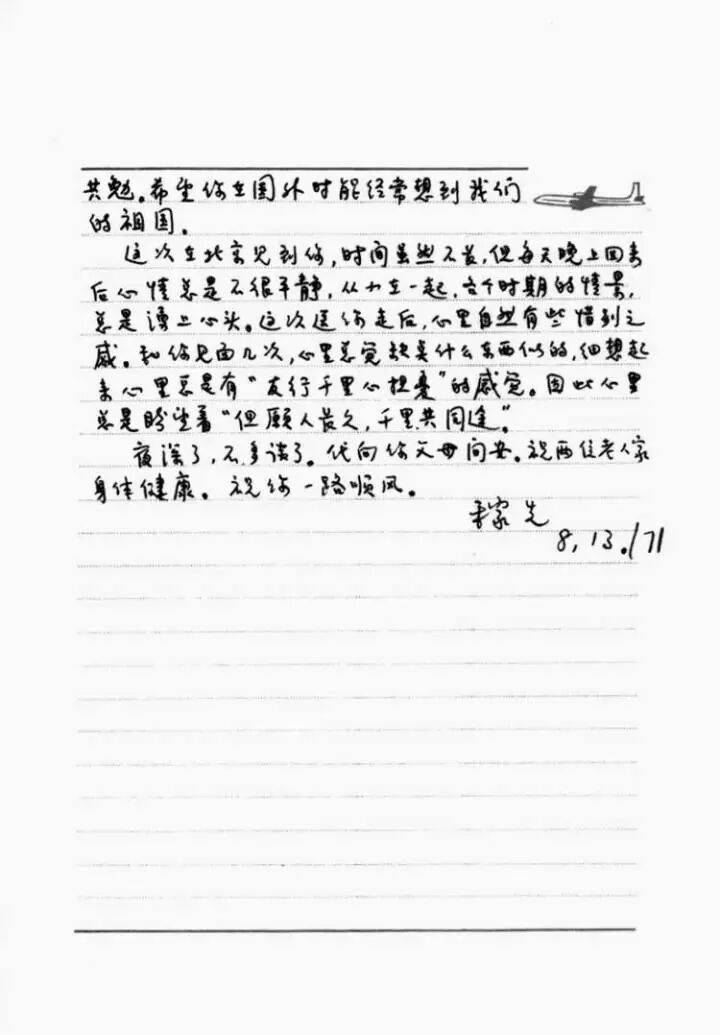 共勉。希望你在国外时能经常想到我们
的祖国。
这次在北京见到你,时间虽然不长,但每天晚上回来
后心情总是不很平静,从小在一起,各个时期的情景,
总是涌上心头。这次送你走后,心里自然有些惜别之
感。和你见面几次,心里总觉缺点什么东西似的,细想起
来心里总是有“友行千里心担忧”的感觉。因此心里
总是盼望着“但愿人长久,千里共同途”。
夜深了,不多谈了。代向你父母问安。祝两位老人家
身体健康。祝你一路顺风。
稼先
8.13./71